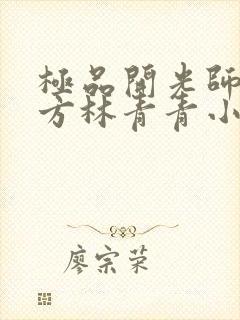 極品開光師
方林青青小
廖宗荣